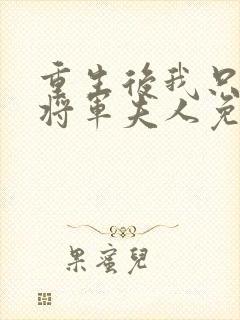 重生後我只
將軍夫人免
果蜜兒